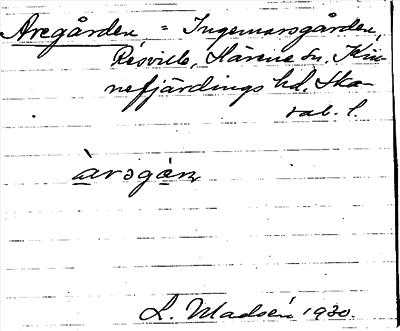 Aregården = Ingemarsgården,
Resville, Härene sn. Kin-
nefjärdings hd. Ska-
rab. l.
àrsgán
L. Madsén 1930.